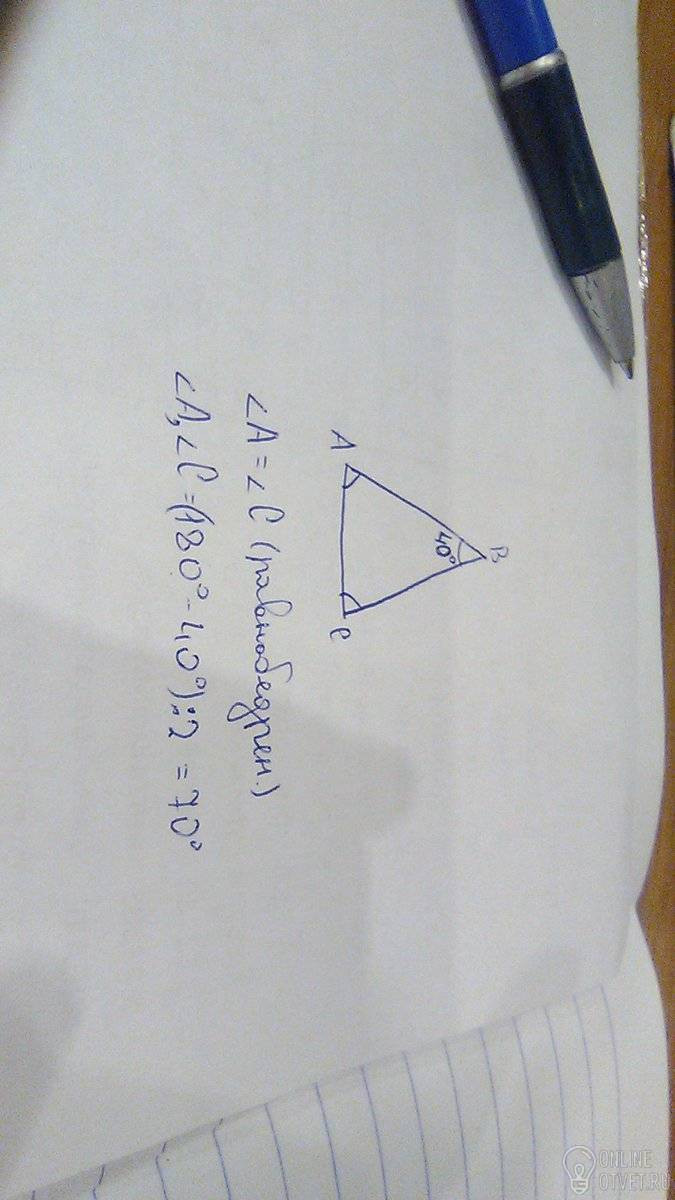 B
40°
A
C
∠A = ∠C (равнобедрен.)
∠A, ∠C = (180° - 40°) : 2 = 70°
ONLINE
OTVET.RU